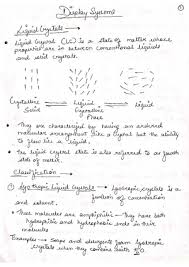 Display Systems
1
Liquid Crystals
Liquid Crystal (LC) is a state of matter whose
properties are in between conventional liquids
and solid crystals.
Crystalline Solid
Liquid Crystalline Phase
Liquid
They are characterized by having an ordered
molecular arrangement like a crystal but the ability
to flow like a liquid.
The liquid crystal state is also referred to as fourth
state of matter.
Classification
1 Lyotropic Liquid Crystals → Lyotropic crystals is a
function of concentration
and solvent.
That molecules are amphiphilic - they have both
hydrophilic and hydrophobic ends in their
molecules
Examples → soaps and detergents form lyotropic
crystals when they combine with